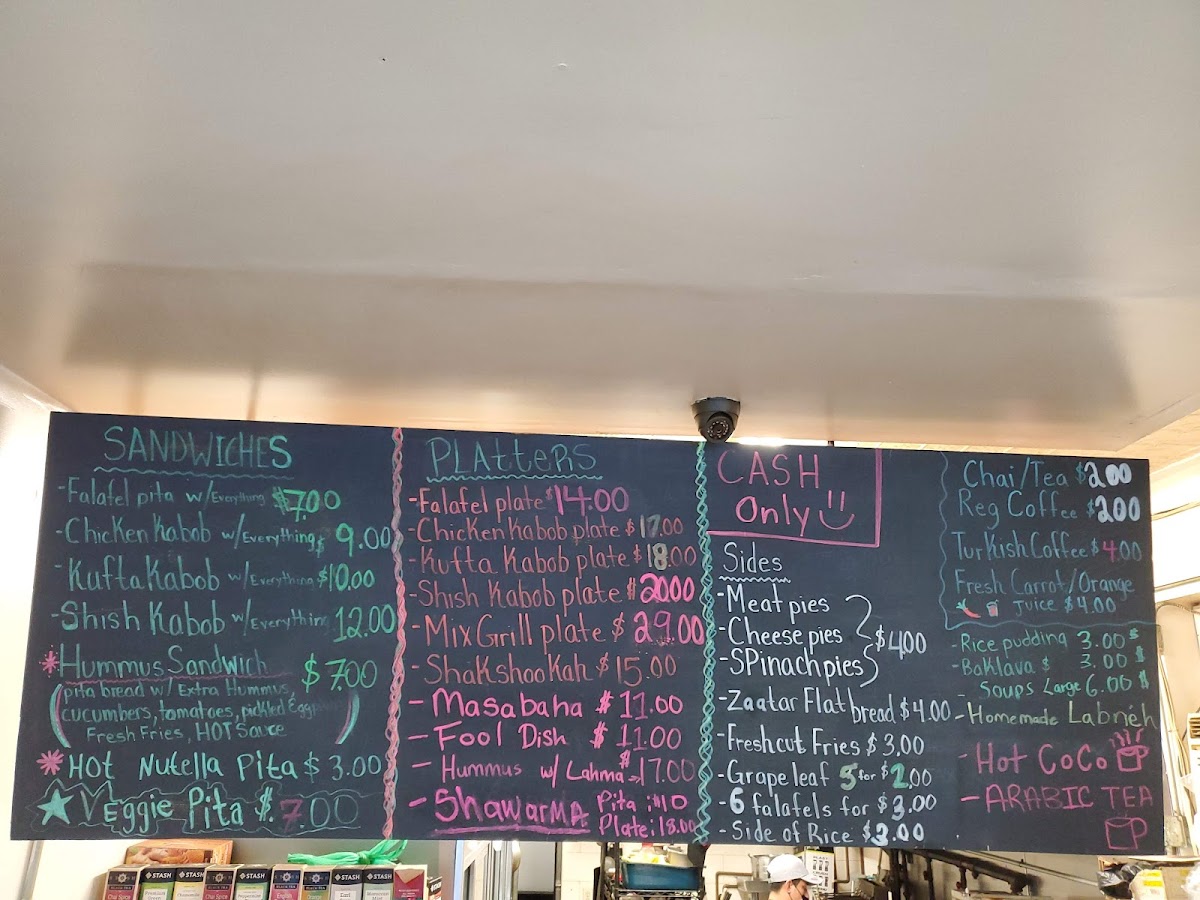 SANDWICHES
-Falafel pita w/Everything $7.00
-Chicken Kabob w/Everything $ 9.00
-Kufta Kabob w/Everything $10.00
-Shish Kabob w/Everything 12.00
*Hummus Sandwich $7.00
(pita bread w/ Extra Hummus,
cucumbers, tomatoes, pickled
Fresh Fries, HOT Sauce)
*HOT Nutella Pita $3.00
Veggie Pita $7.00
PLAtteRS
-Falafel plate $14.00
-Chicken Kabob plate $ 17.00
-Kufta Kabob plate $18.00
-Shish Kabob plate $20.00
-Mix Grill plate $ 29.00
-ShaKshooKah $15.00
-Masabaha $11.00
-Fool Dish $11.00
-Hummus w/ Lahma $17.00
-ShawarMA Pita: $10
Plate: 18.00
CASH
Only
Sides
-Meat pies
-Cheese pies $4.00
-SPinach pies
-Zaatar Flat bread $4.00
-Fresh cut Fries $3.00
-Grape leaf 5 for $2.00
-6 falafels for $3.00
-Side of Rice $3.00
Chai/Tea $2.00
Reg Coffee $2.00
TurKish Coffee $4.00
Fresh Carrot/Orange
Juice $4.00
-Rice pudding 3.00$
-BaKlava $ 3.00 $
-Soups Large 6.00 $
-Homemade Labneh
-Hot CoCo
-ARABIC TEA
STASH STASH STASH STASH STASH